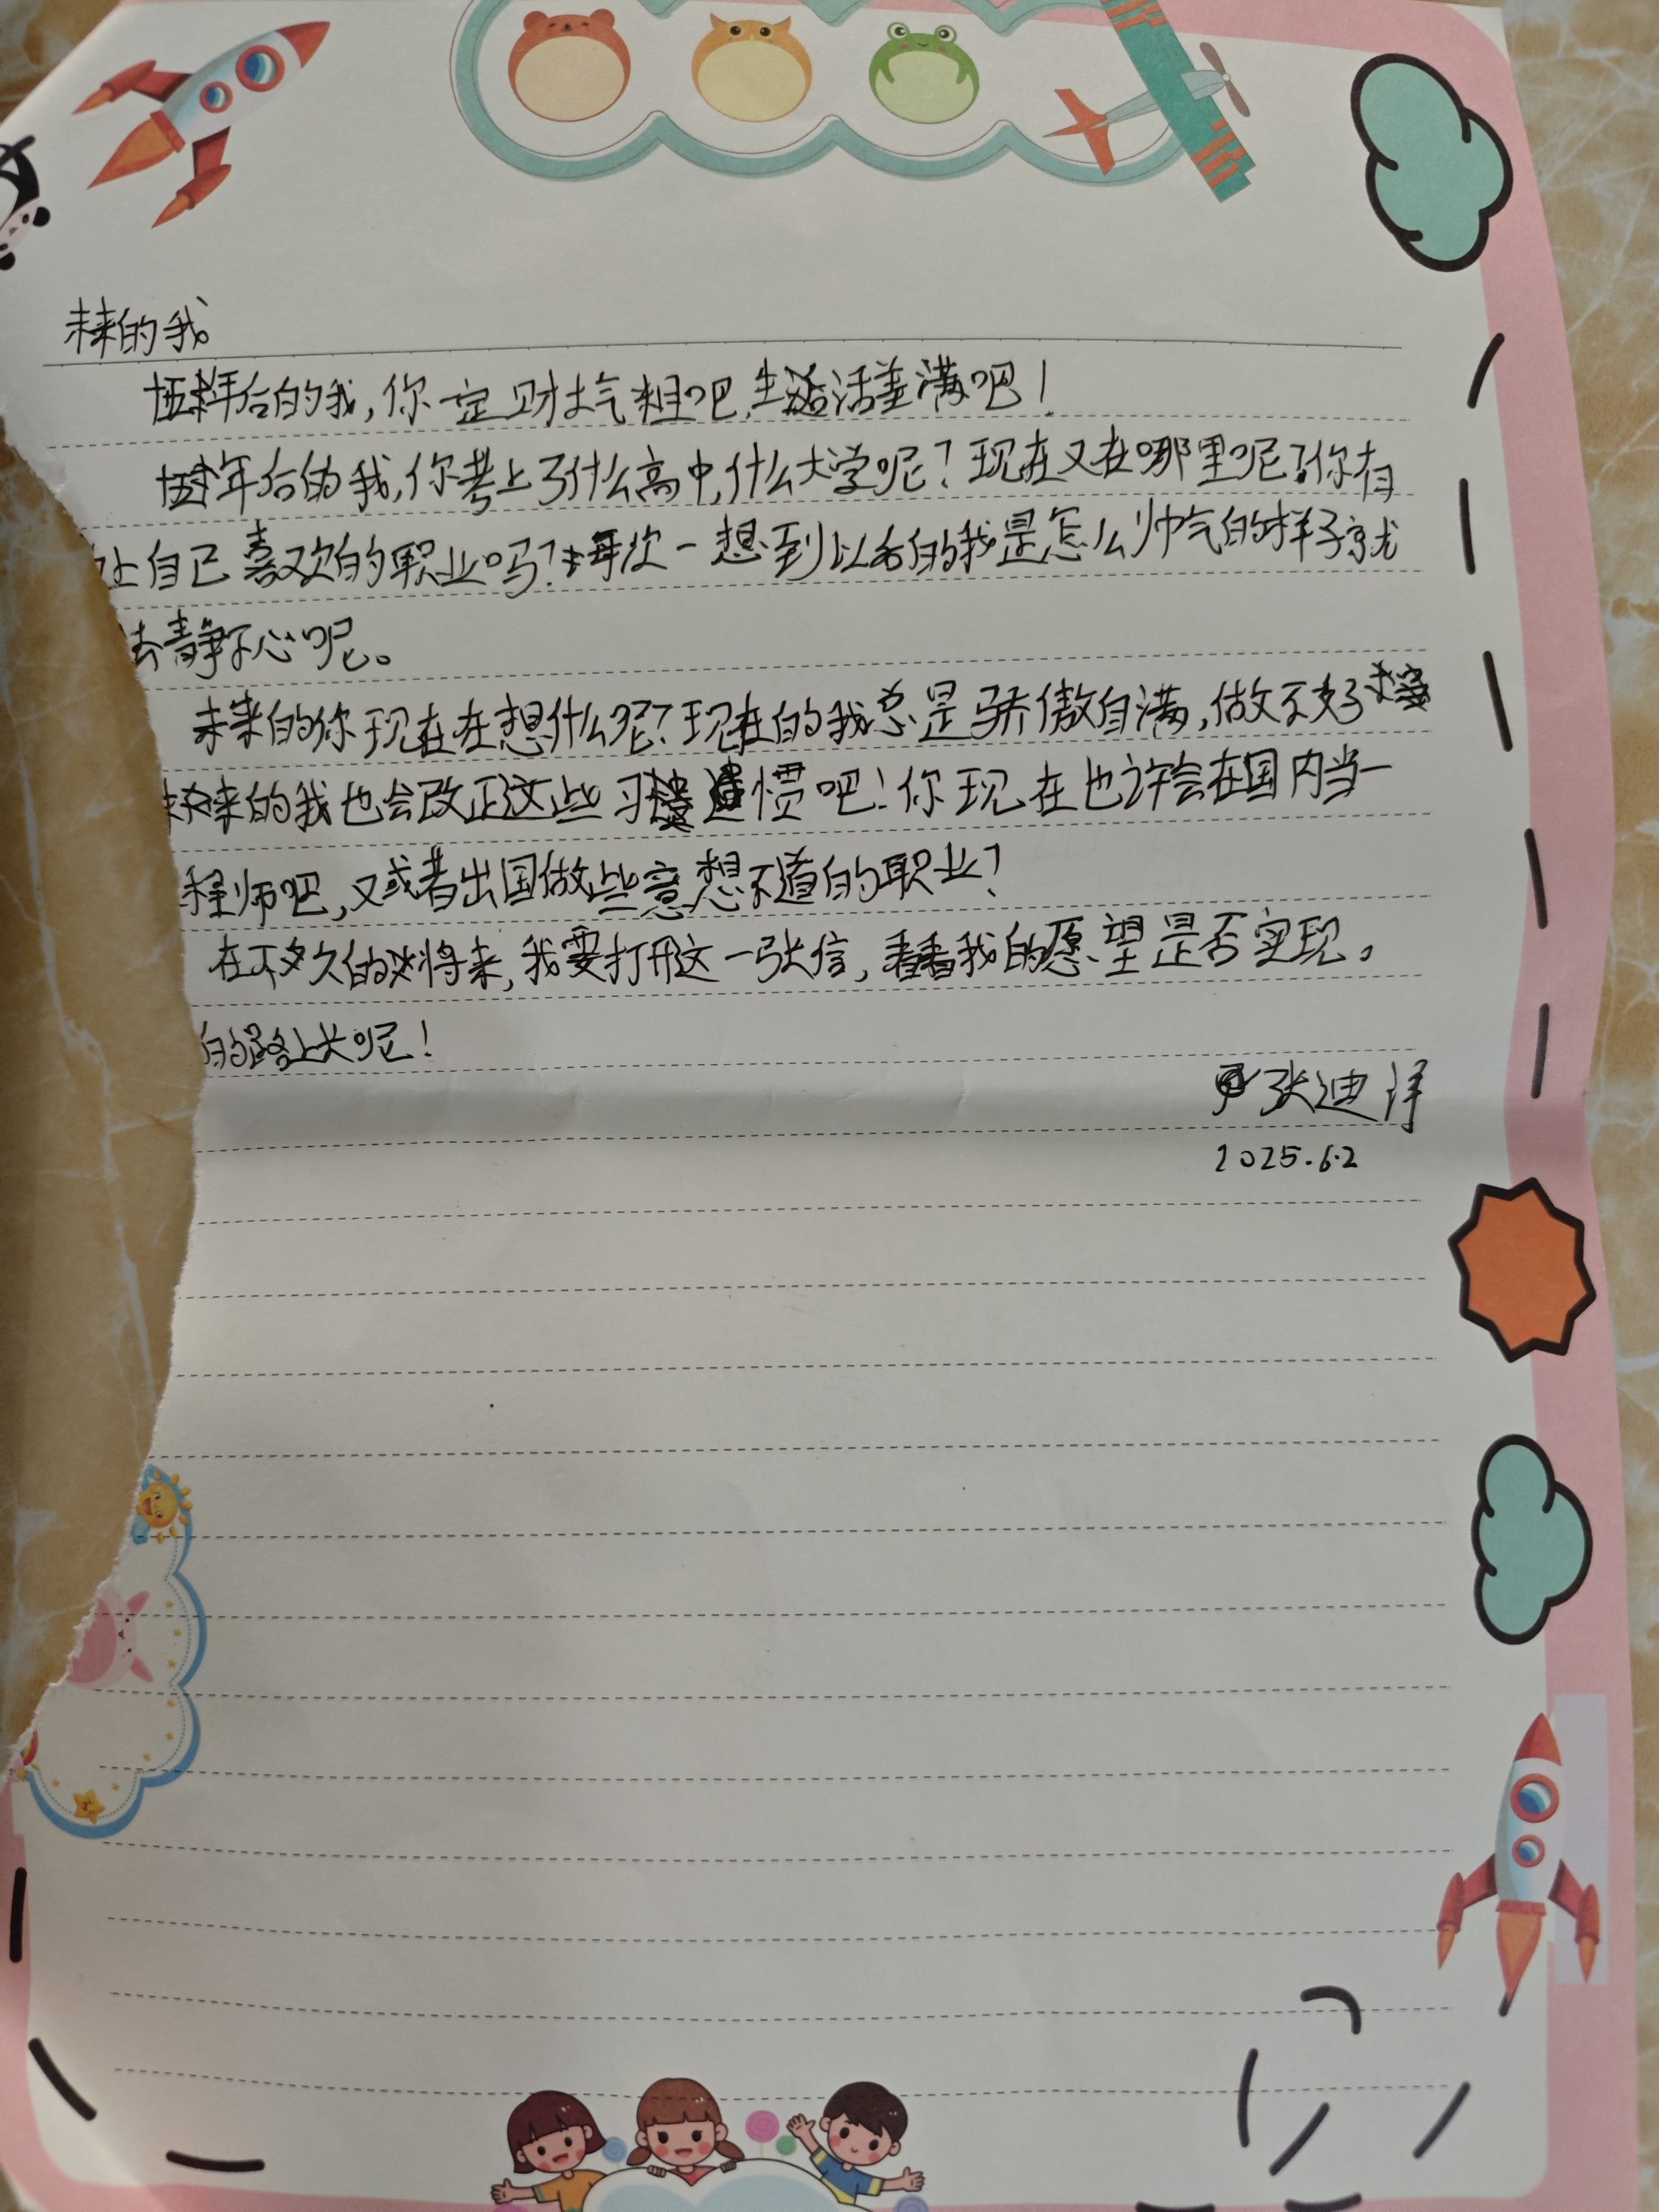 未来的我
年后的我,你一定财大气粗吧,生活美满吧!
年后的我,你考上了什么高中,什么大学呢?现在又在哪里呢?你有
上自己喜欢的职业吗?每次一想到以后的我是怎么帅气的样子就
去静下心呢。
未来的你现在在想什么呢?现在的我总是骄傲自满,做不好
未来的我也会改正这些习惯吧!你现在也许会在国内当一
程师吧,又或者出国做些意想不道的职业?
在不多久的将来,我要打开这一张信,看看我的愿望是否实现。
的路上长呢!
张迪洋
2025.6.2